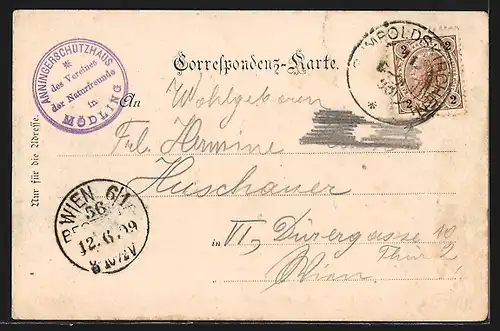 ANNINGERSCHUTZHAUS
des Vereines
der Naturfreunde
in
MÖDLING
Correspondenz-Karte.
2 2
2 2
An Wohlgeboren
Frl. Hermine
Huschauer
in VI, Dürergasse 19
Thür 2
Wien
Nur für die Adresse.
WIEN 6/1
56
12.6.99